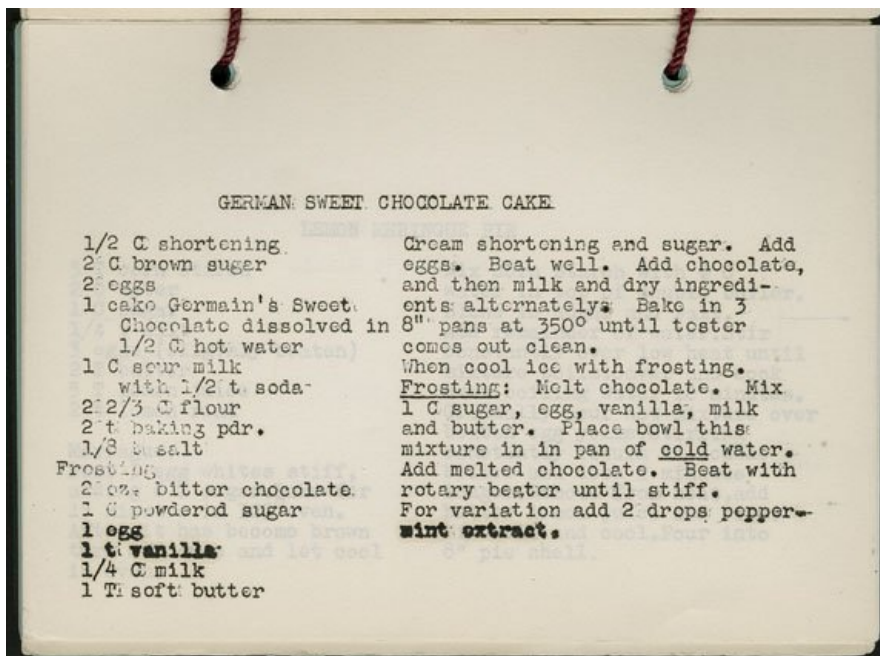 GERMAN SWEET CHOCOLATE CAKE
1/2 C shortening
2 C brown sugar
2 eggs
1 cake Germain's Sweet
Chocolate dissolved in
1/2 C hot water
1 C sour milk
with 1/2 t soda
2 2/3 C flour
2 t baking pdr.
1/8 t salt
Frosting
2 oz. bitter chocolate
1 C powdered sugar
1 egg
1 t vanilla
1/4 C milk
1 T soft butter
Cream shortening and sugar. Add
eggs. Beat well. Add chocolate,
and then milk and dry ingredi-
ents alternately. Bake in 3
8" pans at 350° until tester
comes out clean.
When cool ice with frosting.
Frosting: Melt chocolate. Mix
1 C sugar, egg, vanilla, milk
and butter. Place bowl this
mixture in in pan of cold water.
Add melted chocolate. Beat with
rotary beater until stiff.
For variation add 2 drops pepper-
mint extract.